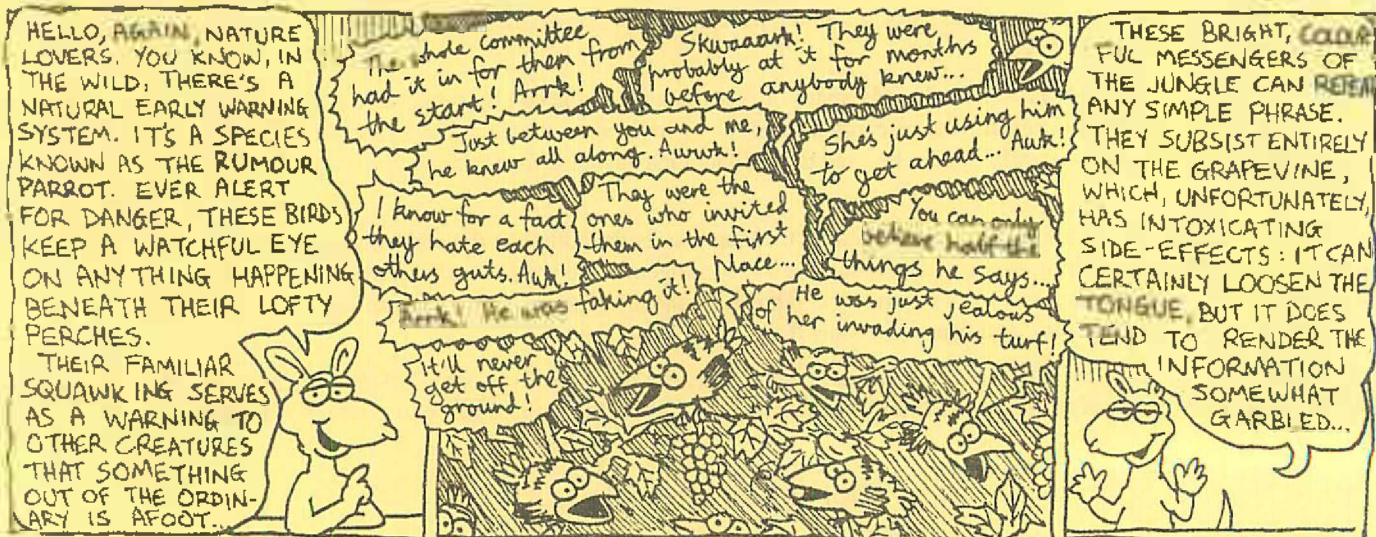 HELLO, AGAIN, NATURE
LOVERS. YOU KNOW, IN
THE WILD, THERE'S A
NATURAL EARLY WARNING
SYSTEM. IT'S A SPECIES
KNOWN AS THE RUMOUR
PARROT. EVER ALERT
FOR DANGER, THESE BIRDS
KEEP A WATCHFUL EYE
ON ANYTHING HAPPENING
BENEATH THEIR LOFTY
PERCHES.
THEIR FAMILIAR
SQUAWKING SERVES
AS A WARNING TO
OTHER CREATURES
THAT SOMETHING
OUT OF THE ORDIN-
ARY IS AFOOT...
The whole committee
had it in for them from
the start! Arrk!
Skwaaaark! They were
probably at it for months
before anybody knew...
Just between you and me,
he knew all along. Awwk!
She's just using him
to get ahead... Awk!
I know for a fact
they hate each
others guts. Awk!
They were the
ones who invited
them in the first
place...
You can only
believe half the
things he says...
Arrk! He was faking it!
He was just jealous
of her invading his turf!
It'll never
get off the
ground!
THESE BRIGHT, COLOUR-
FUL MESSENGERS OF
THE JUNGLE CAN REPEAT
ANY SIMPLE PHRASE.
THEY SUBSIST ENTIRELY
ON THE GRAPEVINE,
WHICH, UNFORTUNATELY,
HAS INTOXICATING
SIDE-EFFECTS: IT CAN
CERTAINLY LOOSEN THE
TONGUE, BUT IT DOES
TEND TO RENDER THE
INFORMATION
SOMEWHAT
GARBLED...